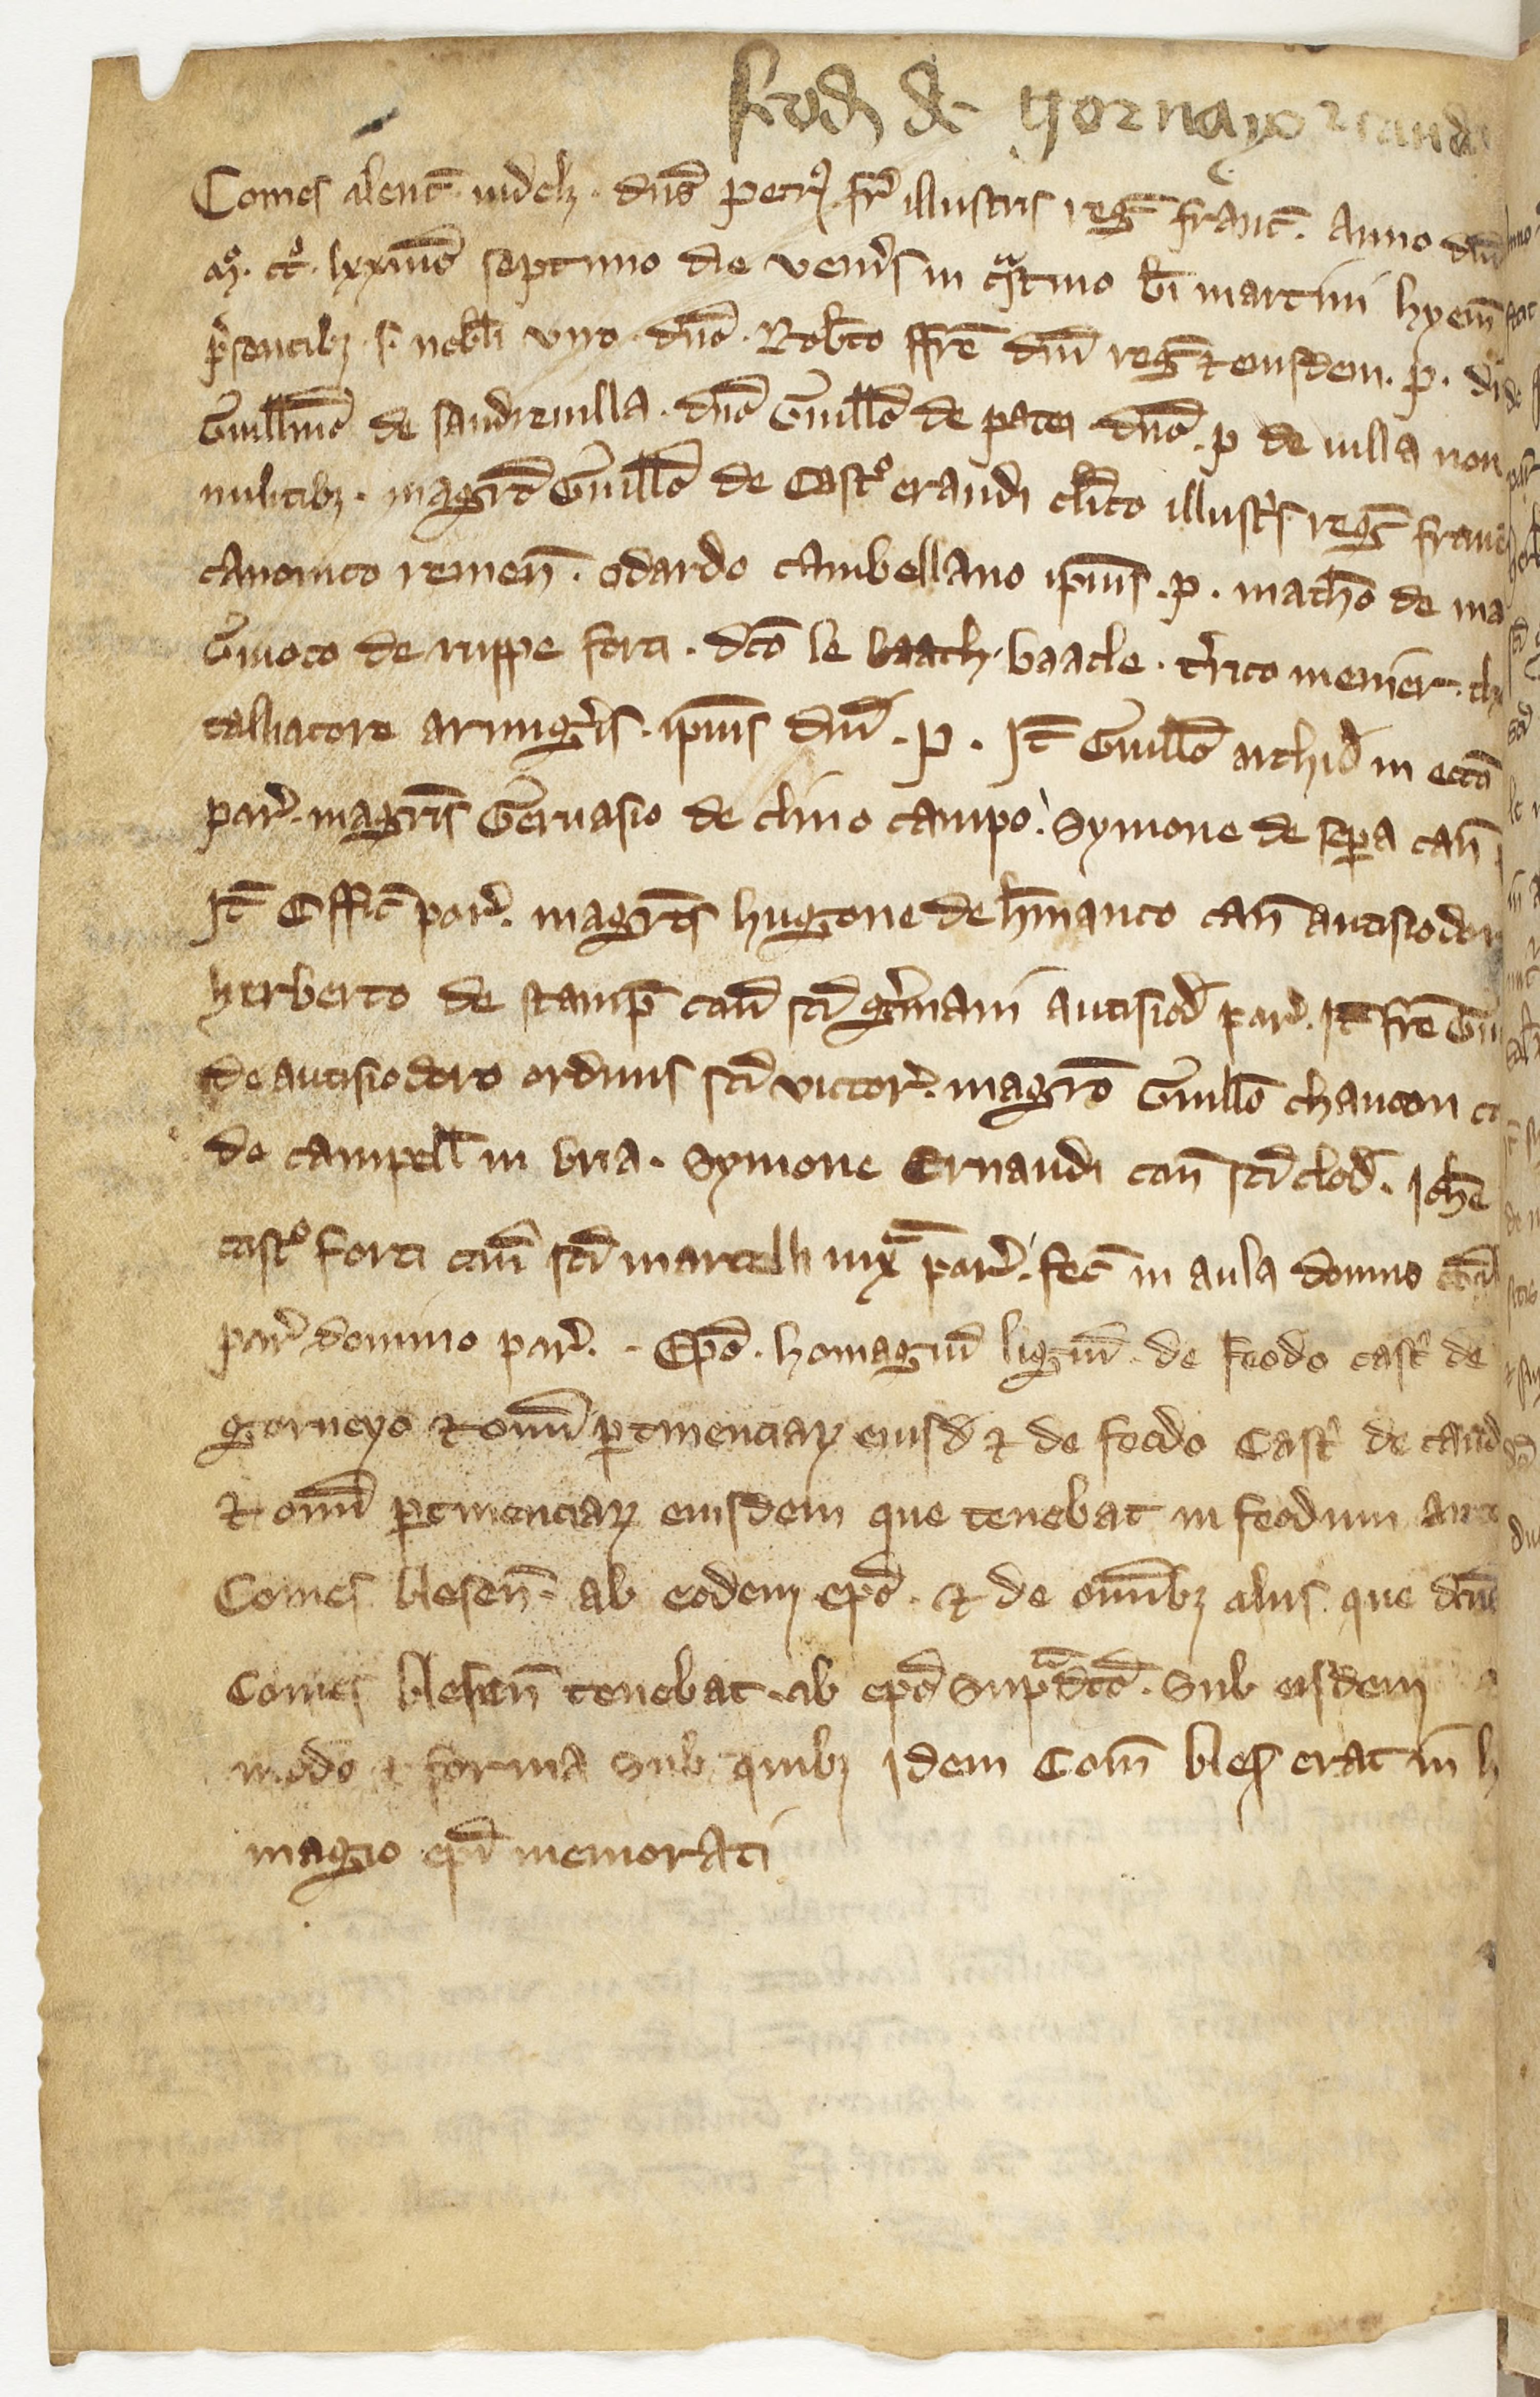 feod de Gornayo et cand
Comes alenc̄. videlȝ. dn̄s petrꝰ fr̄ illustris reḡ franc̄. Anno dn̄i
mͦ. ccͦ. lxxmͦ septimo die ven̄is in cͣstino bī martini hyem̄
p̄sentibȝ. s. nobli viro. dn̄o. Rob̄to ffr̄e dn̄i reḡ ⁊ eiusdem. p.
Guillmō de sandrevilla. dn̄o Guillō de patei dn̄o. p de villa non
militibȝ. magr̄o Guillō de Castͦ eraudi cl̄ico illustris reḡ franc
canonico remen̄. odardo cambellano ip̄ius. p. math̄o de ma
Guioto de ruppe forti. dc̄o le baacle. t̄rico menier.
talliatore armiḡis. ip̄ius dn̄i. p. Jt̄ Guillō archid̄ in ecc̄a
par̄. magr̄is Gervasio de clino campo. Symone de sep̄a can̄
Jt̄ Offic̄ par̄. magr̄is hugone de h̄manco can̄ autisiodor
herberto de stamp̄ can̄ sc̄i ḡmani autisiod̄ par̄. Jt̄ fr̄e Gui
de autisiodoro ordinis sc̄i victor̄. magr̄o Guillō chaucon
de campell̄ in bria. Symone Ernaudi can̄ sc̄i clod̄. Joh̄e
castͦ forti can̄ sc̄i marcelli iuxͣ par̄. fec̄ in aula domo
par̄ domino par̄. Ep̄o. homagiū ligiū. de feodo castͥ de
gorneyo ⁊ om̄i p̱tinenciaꝝ eiusd̄ ⁊ de feodo Castͥ de cand
⁊ om̄i p̱tinenciaꝝ eiusdem que tenebat in feodum
Comes blesen̄. ab eodem ep̄o. ⁊ de om̄ibȝ aliis que dc̄us
Comes blesen̄ tenebat. ab ep̄o supͣdc̄o. Sub eisdem
modo ⁊ forma sub quibȝ idem Com̄ bles̄ erat in h
magio ep̄i memorati